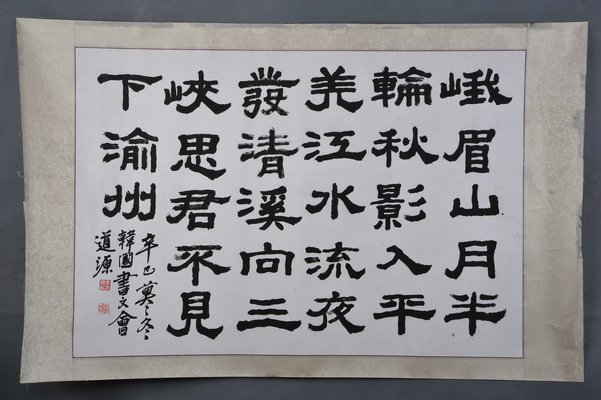 峨眉山月半
輪秋影入平
羌江水流夜
發清溪向三
峽思君不見
下渝州
辛巳莫冬
韓國書文會
道源